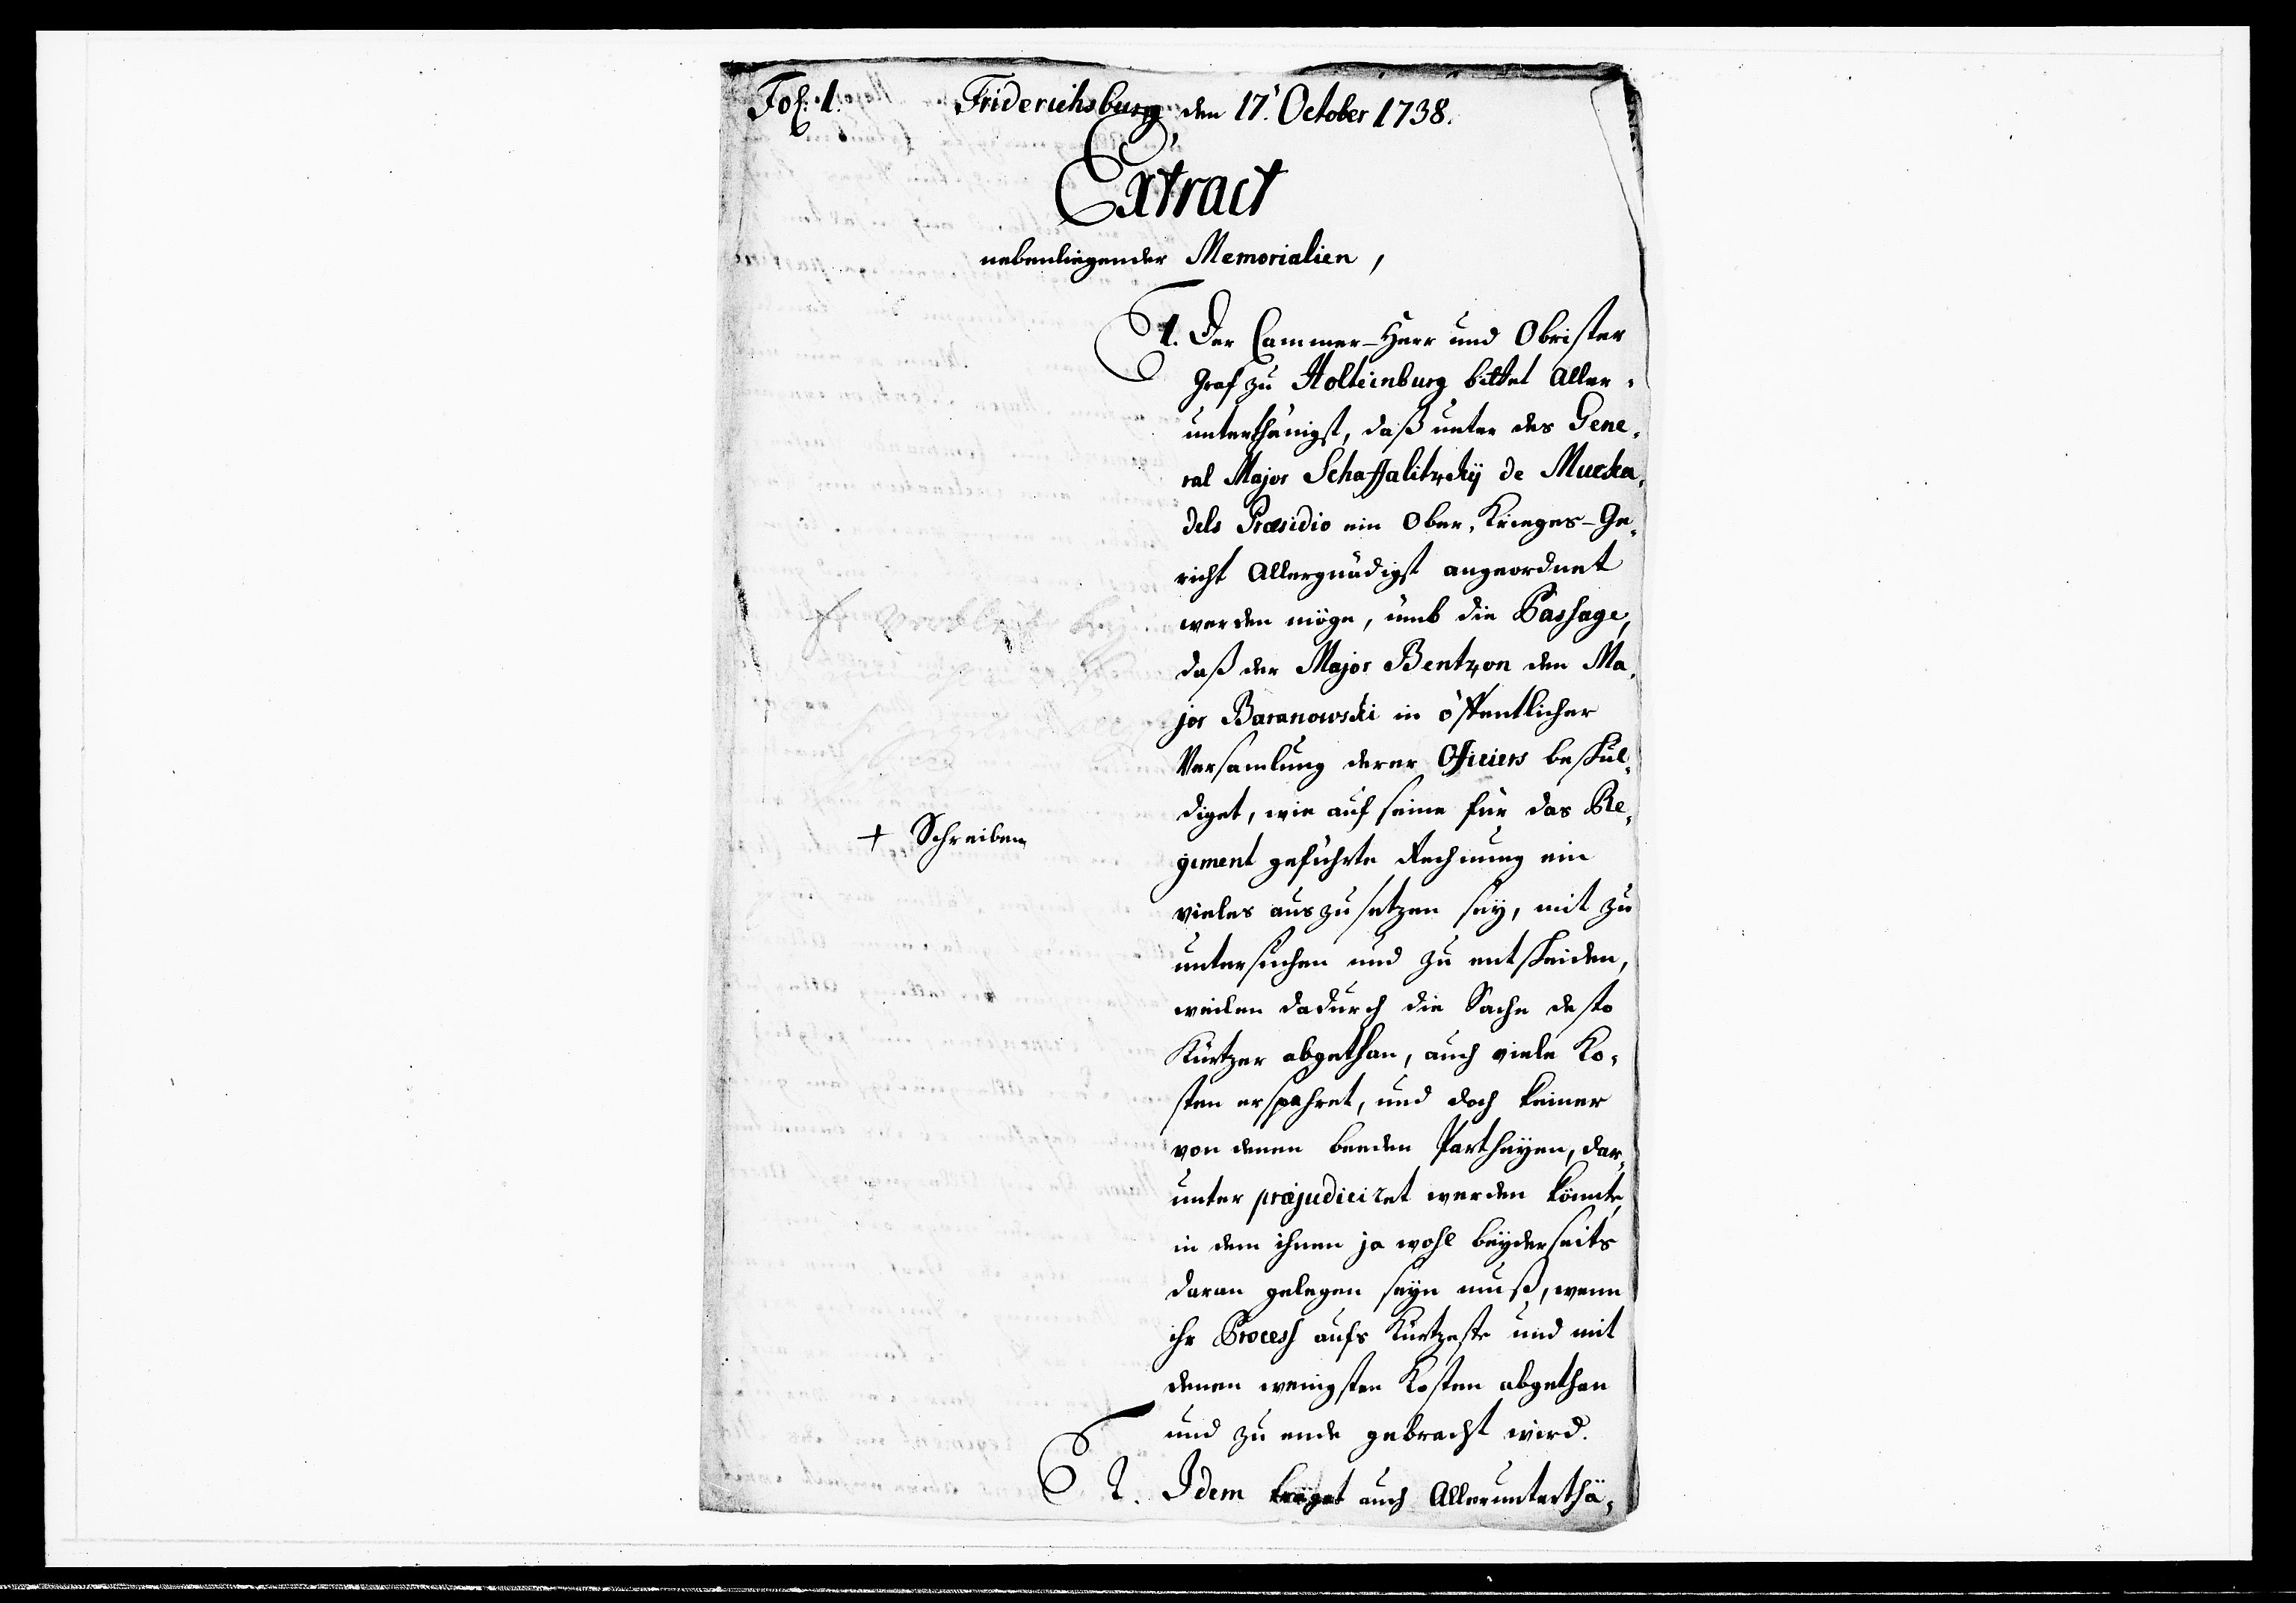 Fol: 1. Friderichsburg, den 17.' October 1738.
Extract
nebenliegender Memorialien,
1. Der Cammer-Herr und Obrister
Graf zu Holsteinburg bittet Aller-
unterthänigst, daß unter des Gene-
ral Major Schaffalitzkÿ de Mucka-
dels Præsidio ein Ober-Krieges-Ge-
richt Allergnädigst angeordnet
werden möge, umb die Passage,
daß der Major Bentzon den Ma-
jor Baranowski in öffentlicher
Versamlung derer Officiers beschul-
diget, wie auf seine für das Re-
giment geführte Rechnung ein
vieles auszusetzen seÿ, mit zu
untersuchen und zu entscheiden,
weilen dadurch die Sache desto
Kürtzer abgethan, auch viele Ko-
sten erspahret, und doch keiner
von denen beeden Partheÿen, dar-
unter præjudiciret werden könnte,
in dem ihnen ja wohl beÿderseits
daran gelegen seÿn muß, wenn
ihr Process aufs Kürtzeste und mit
denen wenigsten Kosten abgethan
und zu ende gebracht wird.
2. Idem träget auch Allerunterthä-
+ Schreiben